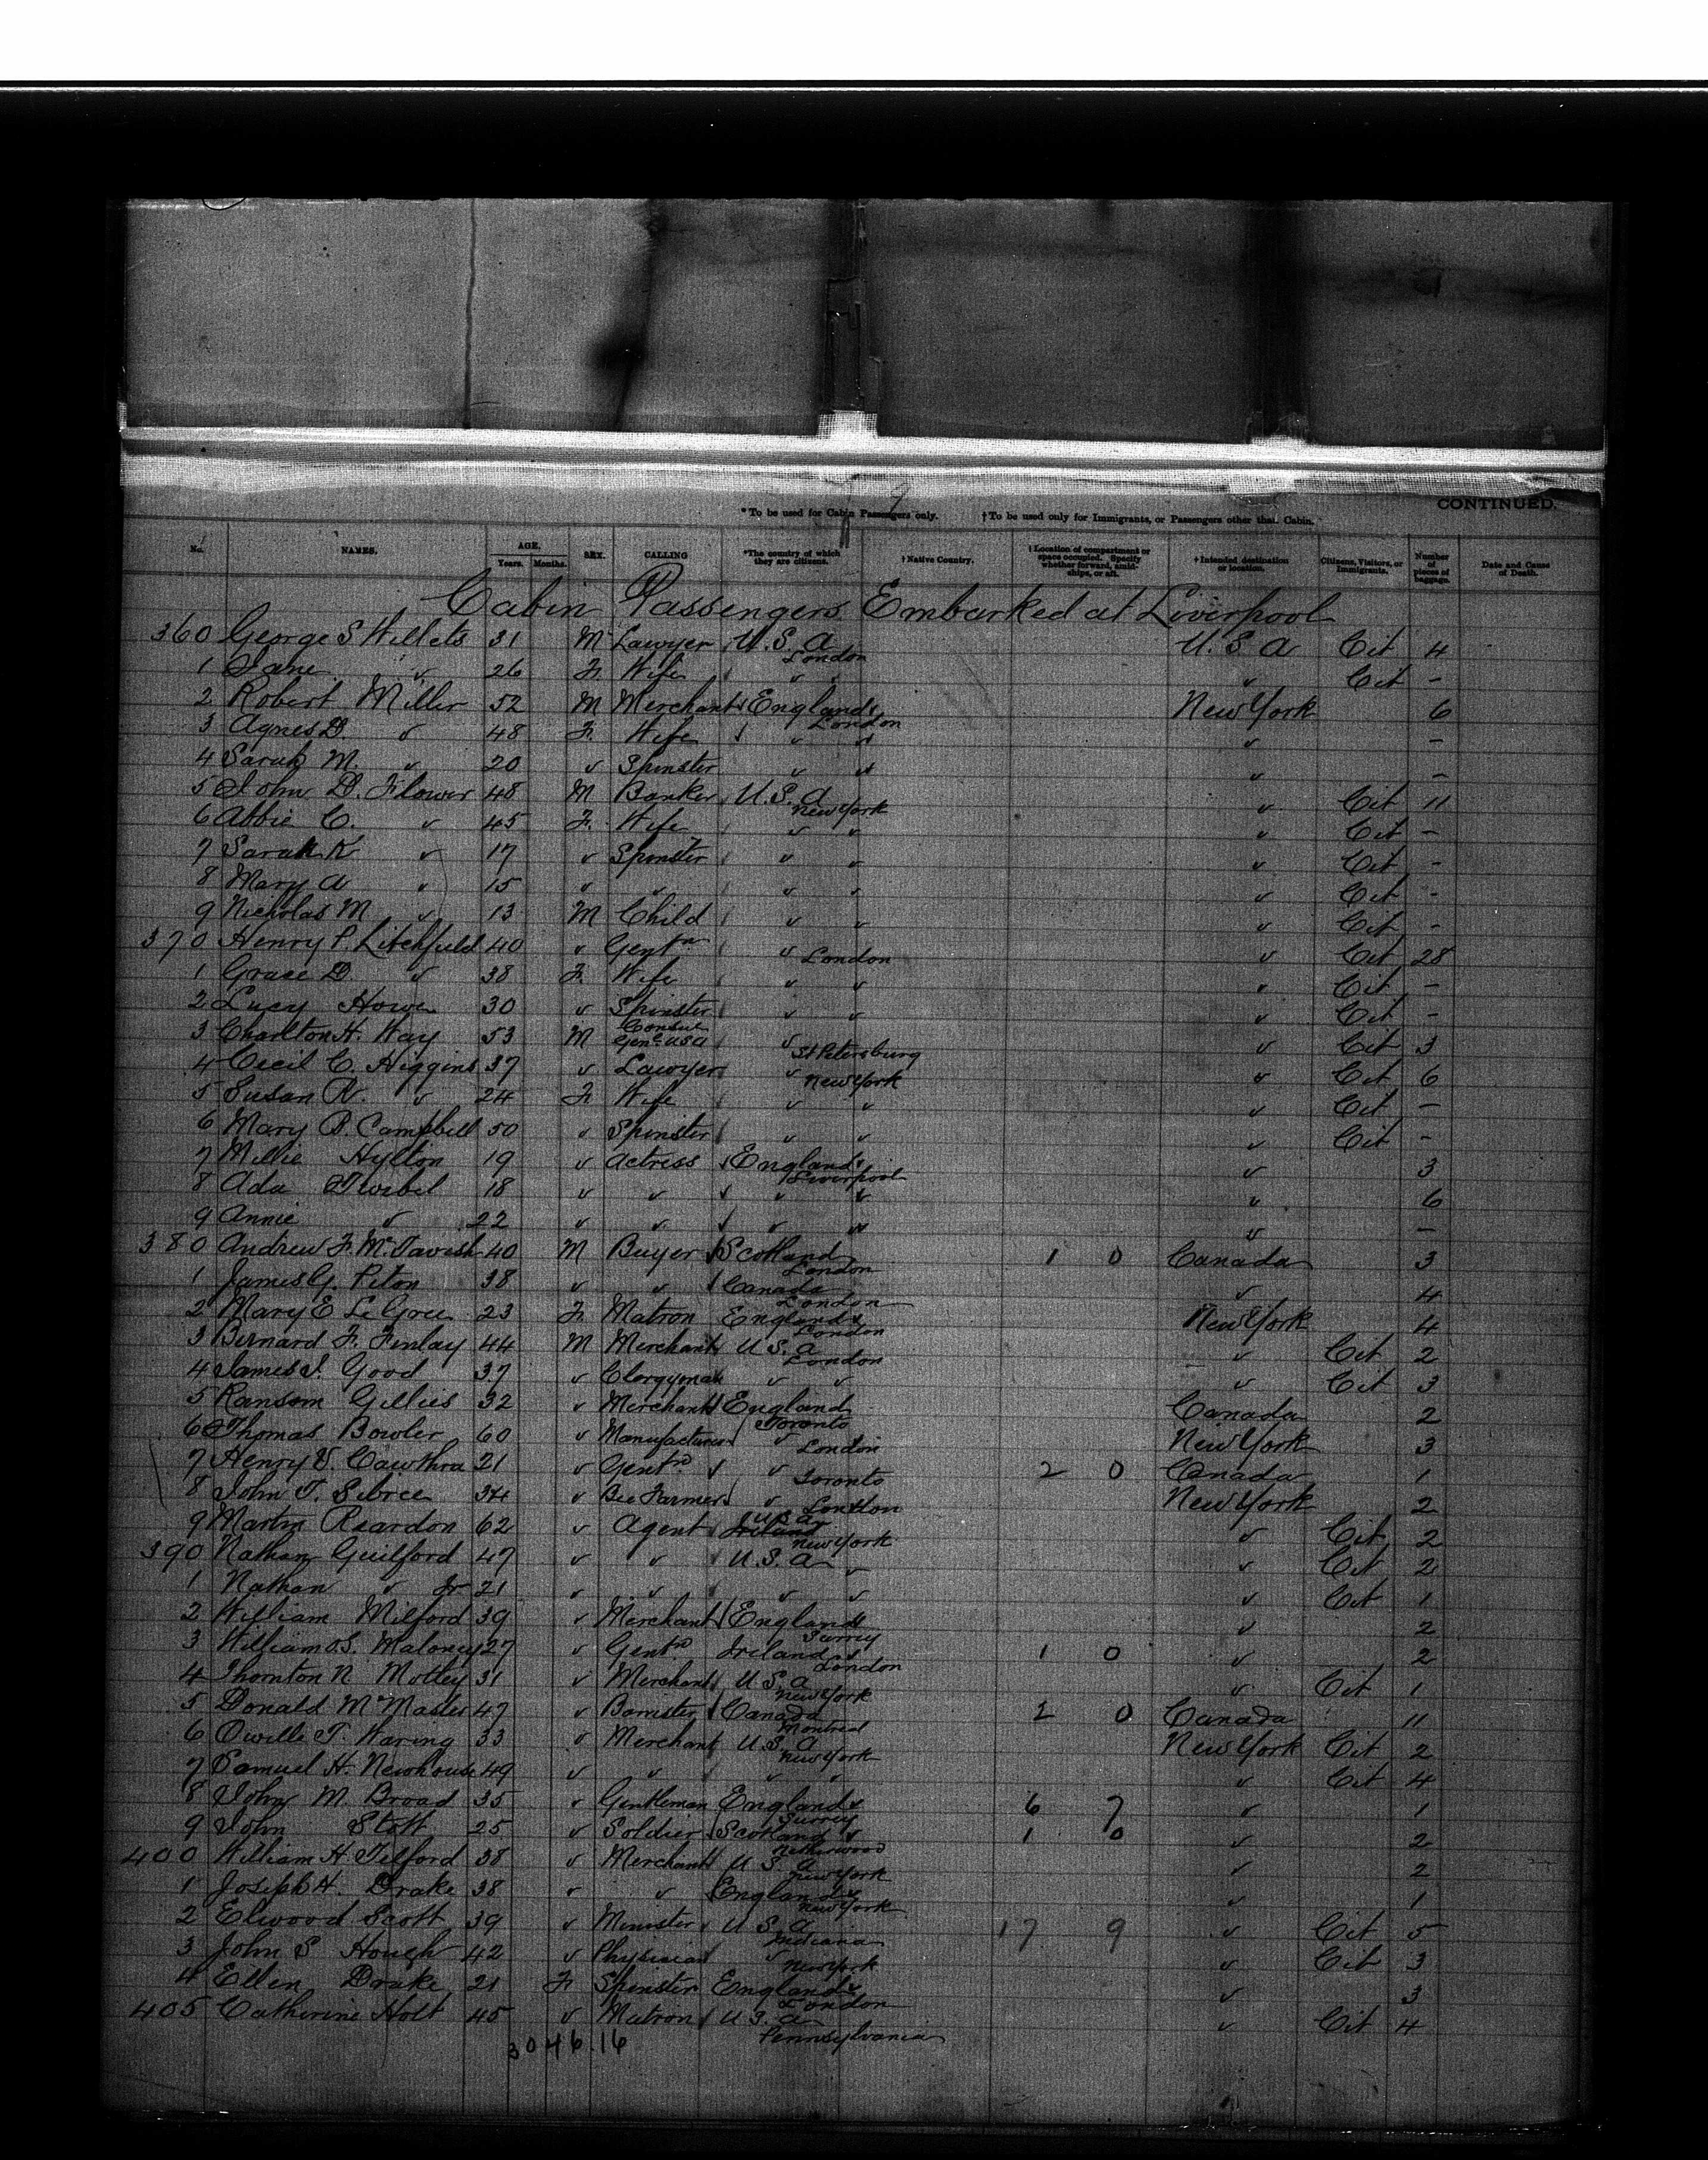 CONTINUED.
*To be used for Cabin Passengers only. †To be used only for Immigrants, or Passengers other than Cabin.
No. NAMES. AGE. Years. Months. SEX. CALLING *The country of which they are citizens. †Native Country. †Location of compartment or space occupied. Specify whether forward, amidships, or aft. †Intended destination or location. Citizens, Visitors, or Immigrants. Number of pieces of baggage. Date and Cause of Death.
Cabin Passengers Embarked at Liverpool
360 George S Willets 31 M Lawyer U.S.A London U.S.A Cit 4
1 Jane " 26 F. Wife " " " Cit -
2 Robert Miller 52 M Merchant England London New York 6
3 Agnes D. " 48 F. Wife " " " -
4 Sarah M. " 20 " Spinster " " " -
5 John D. Flower 48 M Banker U.S.A New York " Cit 11
6 Abbie C. " 45 F. Wife " " " Cit -
7 Sarah K " 17 " Spinster " " " Cit -
8 Mary A " 15 " " " " " Cit -
9 Nicholas M " 13 M Child " " " Cit -
370 Henry P. Litchfield 40 " Gentn " London " Cit 28
1 Grace D. " 38 F. Wife " " " Cit -
2 Lucy Howe 30 " Spinster " " " Cit -
3 Charlton H. Way 53 M Consul Genl USA " St Petersburg " Cit 3
4 Cecil C. Higgins 37 " Lawyer " New York " Cit 6
5 Susan R. " 24 F. Wife " " " Cit -
6 Mary B. Campbell 50 " Spinster " " " Cit -
7 Millie Hylton 19 " Actress England Liverpool " 3
8 Ada 18 " " " " " 6
9 Annie " 22 " " " " " -
380 Andrew F. McTavish 40 M Buyer Scotland London 1 0 Canada 3
1 James G. Piton 38 " " Canada London " 4
2 Mary E Le Gree 23 F. Matron England London New York 4
3 Bernard F. Finlay 44 M Merchant U.S.A London " Cit 2
4 James I. Good 37 " Clergyman " " " Cit 3
5 Ransom Gillies 32 " Merchant England Toronto Canada 2
6 Thomas Bowler 60 " Manufacturer " London New York 3
7 Henry V. Cawthra 21 " Gentn " Toronto 2 0 Canada 1
8 John T. Sibree 34 " Bee Farmer " London New York 2
9 Martin Reardon 62 " Agent USA Ireland New York " Cit 2
390 Nathan Guilford 47 " " U.S.A " " Cit 2
1 Nathan " Jr 21 " " " " " Cit 1
2 William Milford 39 " Merchant England Surrey " 2
3 William S. Maloney 27 " Gentn Ireland London 1 0 " 2
4 Thornton N Motley 31 " Merchant U.S.A New York " Cit 1
5 Donald McMaster 47 " Barrister Canada Montreal 2 0 Canada 11
6 Orville T. Waring 33 " Merchant U.S.A New York New York Cit 2
7 Samuel H. Newhouse 49 " " " " " Cit 4
8 John M. Broad 35 " Gentleman England Surrey 6 7 " 1
9 John Stott 25 " Soldier Scotland Netherwood 1 0 " 2
400 William H Telford 38 " Merchant U.S.A New York " 2
1 Joseph H. Drake 38 " " England New York " 1
2 Elwood Scott 39 " Minister U.S.A Indiana 17 9 " Cit 5
3 John S Hough 42 " Physician " New York " Cit 3
4 Ellen Drake 21 F Spinster England London " 3
405 Catherine Holt 45 " Matron U.S.A Pennsylvania " Cit 4
3046.16